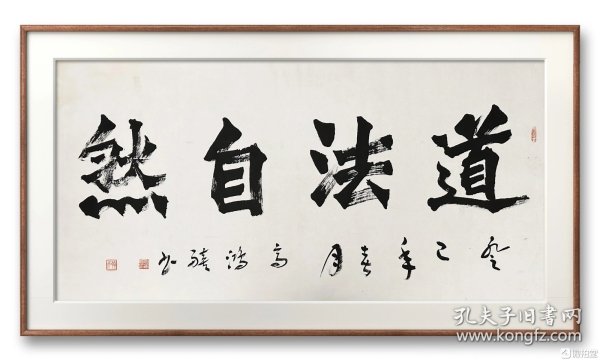 道法自然
癸巳年春月 高鸿书
孔夫子旧书网
www.kongfz.com
微拍堂